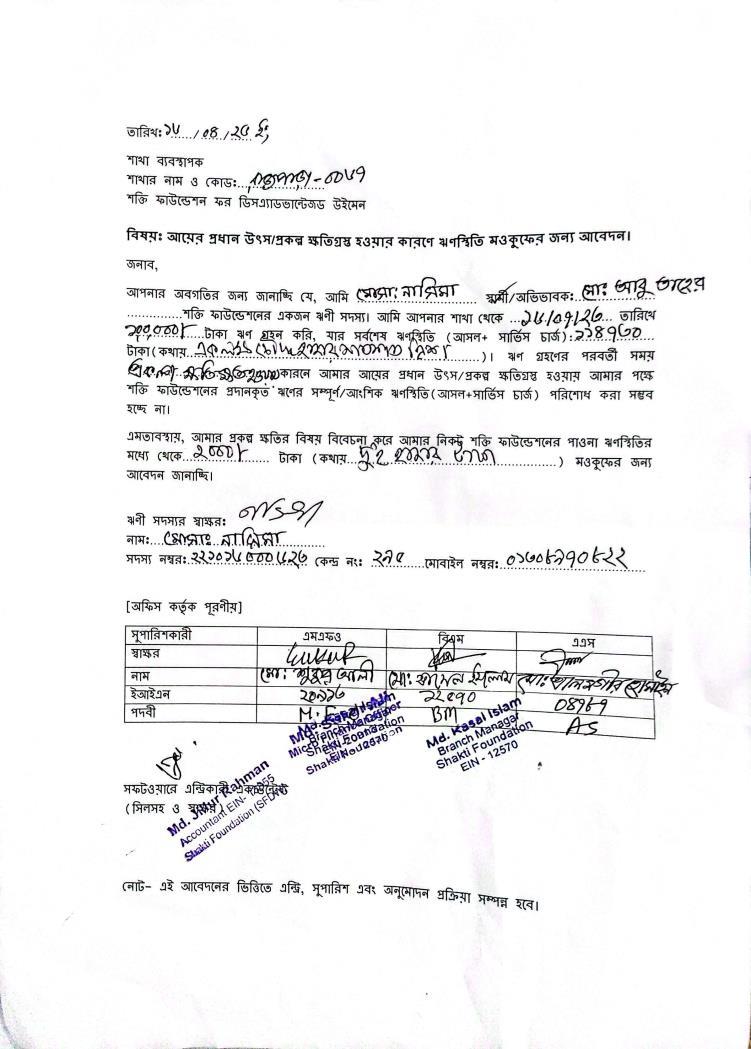 তারিখ: ১৫/০৪/২৫ ইং
শাখা ব্যবস্থাপক
শাখার নাম ও কোড:
শক্তি ফাউন্ডেশন ফর ডিসএ্যাডভান্টেজড উইমেন
বিষয়: আয়ের প্রধান উৎস/প্রকল্প ক্ষতিগ্রস্ত হওয়ার কারণে ঋণস্থিতি মওকুফের জন্য আবেদন।
জনাব,
আপনার অবগতির জন্য জানাচ্ছি যে, আমি মোসা: নাসিমা স্বামী/অভিভাবক: মো: আবু তাহের
শক্তি ফাউন্ডেশনের একজন ঋণী সদস্য। আমি আপনার শাখা থেকে তারিখে
টাকা ঋণ গ্রহন করি, যার সর্বশেষ ঋণস্থিতি (আসল+ সার্ভিস চার্জ): ১১৪৭৩০
টাকা (কথায় এক লক্ষ চৌদ্দ হাজার সাতশত ত্রিশ)। ঋণ গ্রহণের পরবর্তী সময়
কারনে আমার আয়ের প্রধান উৎস/প্রকল্প ক্ষতিগ্রস্ত হওয়ায় আমার পক্ষে
শক্তি ফাউন্ডেশনের প্রদানকৃত ঋণের সম্পূর্ণ/আংশিক ঋণস্থিতি (আসল+সার্ভিস চার্জ) পরিশোধ করা সম্ভব
হচ্ছে না।
এমতাবস্থায়, আমার প্রকল্প ক্ষতির বিষয় বিবেচনা করে আমার নিকট শক্তি ফাউন্ডেশনের পাওনা ঋণস্থিতির
মধ্যে থেকে ২০০০/ টাকা (কথায় দুই হাজার টাকা) মওকুফের জন্য
আবেদন জানাচ্ছি।
ঋণী সদস্যর স্বাক্ষর:
নাম: মোসাঃ নাসিমা
সদস্য নম্বর: কেন্দ্র নং: মোবাইল নম্বর:
[অফিস কর্তৃক পূরণীয়]
সুপারিশকারী এমএফও বিএম এএস
স্বাক্ষর
নাম মো: আলী মো: ইসলাম মো: আলমগীর হোসাইন
ইআইএন ১২৫৭০
পদবী BM AS
Md. Kasai Islam
Branch Manager
Shakti Foundation
EIN - 12570
সফটওয়ারে এন্ট্রিকারী একাউন্টেন্ট
(সিলসহ ও স্বাক্ষর)
Rahman
Accountant
Shakti Foundation
নোট- এই আবেদনের ভিত্তিতে এন্ট্রি, সুপারিশ এবং অনুমোদন প্রক্রিয়া সম্পন্ন হবে।